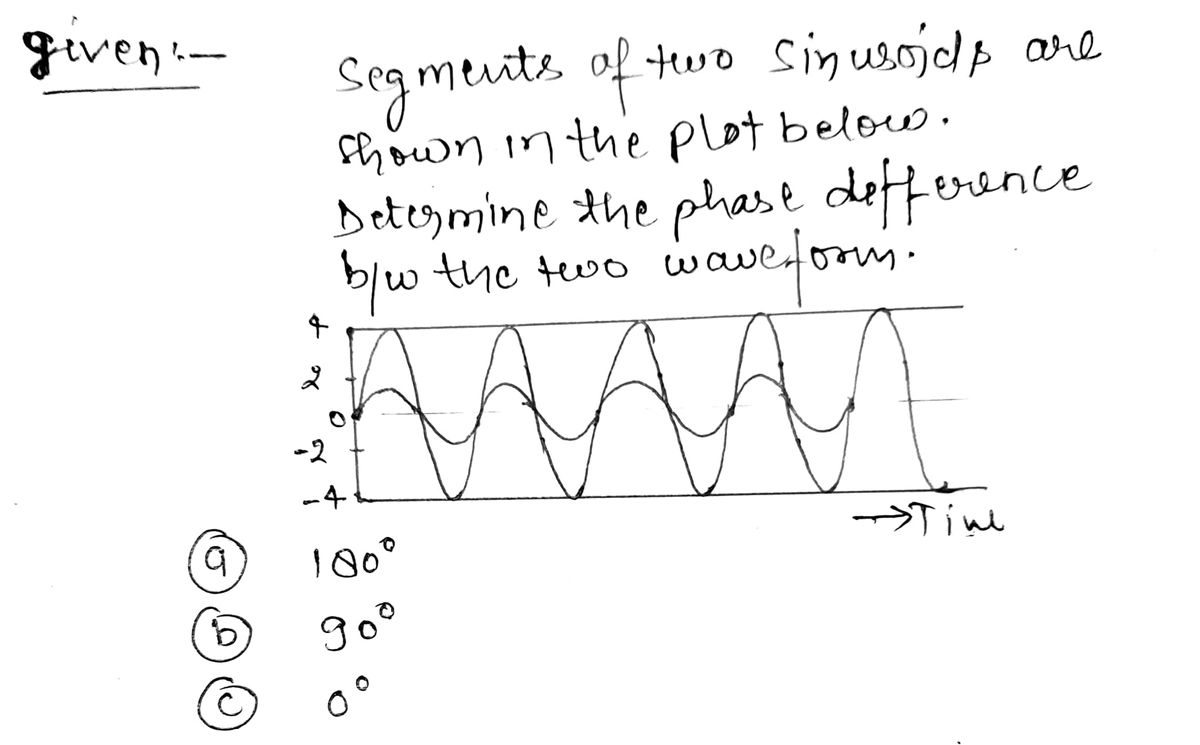 given:-
Segments of two Sinusoids are
shown in the plot below.
Determine the phase defference
b/w the two waveform.
4
2
0
-2
-4
→Time
(a) 180°
(b) 90°
(c) 0°